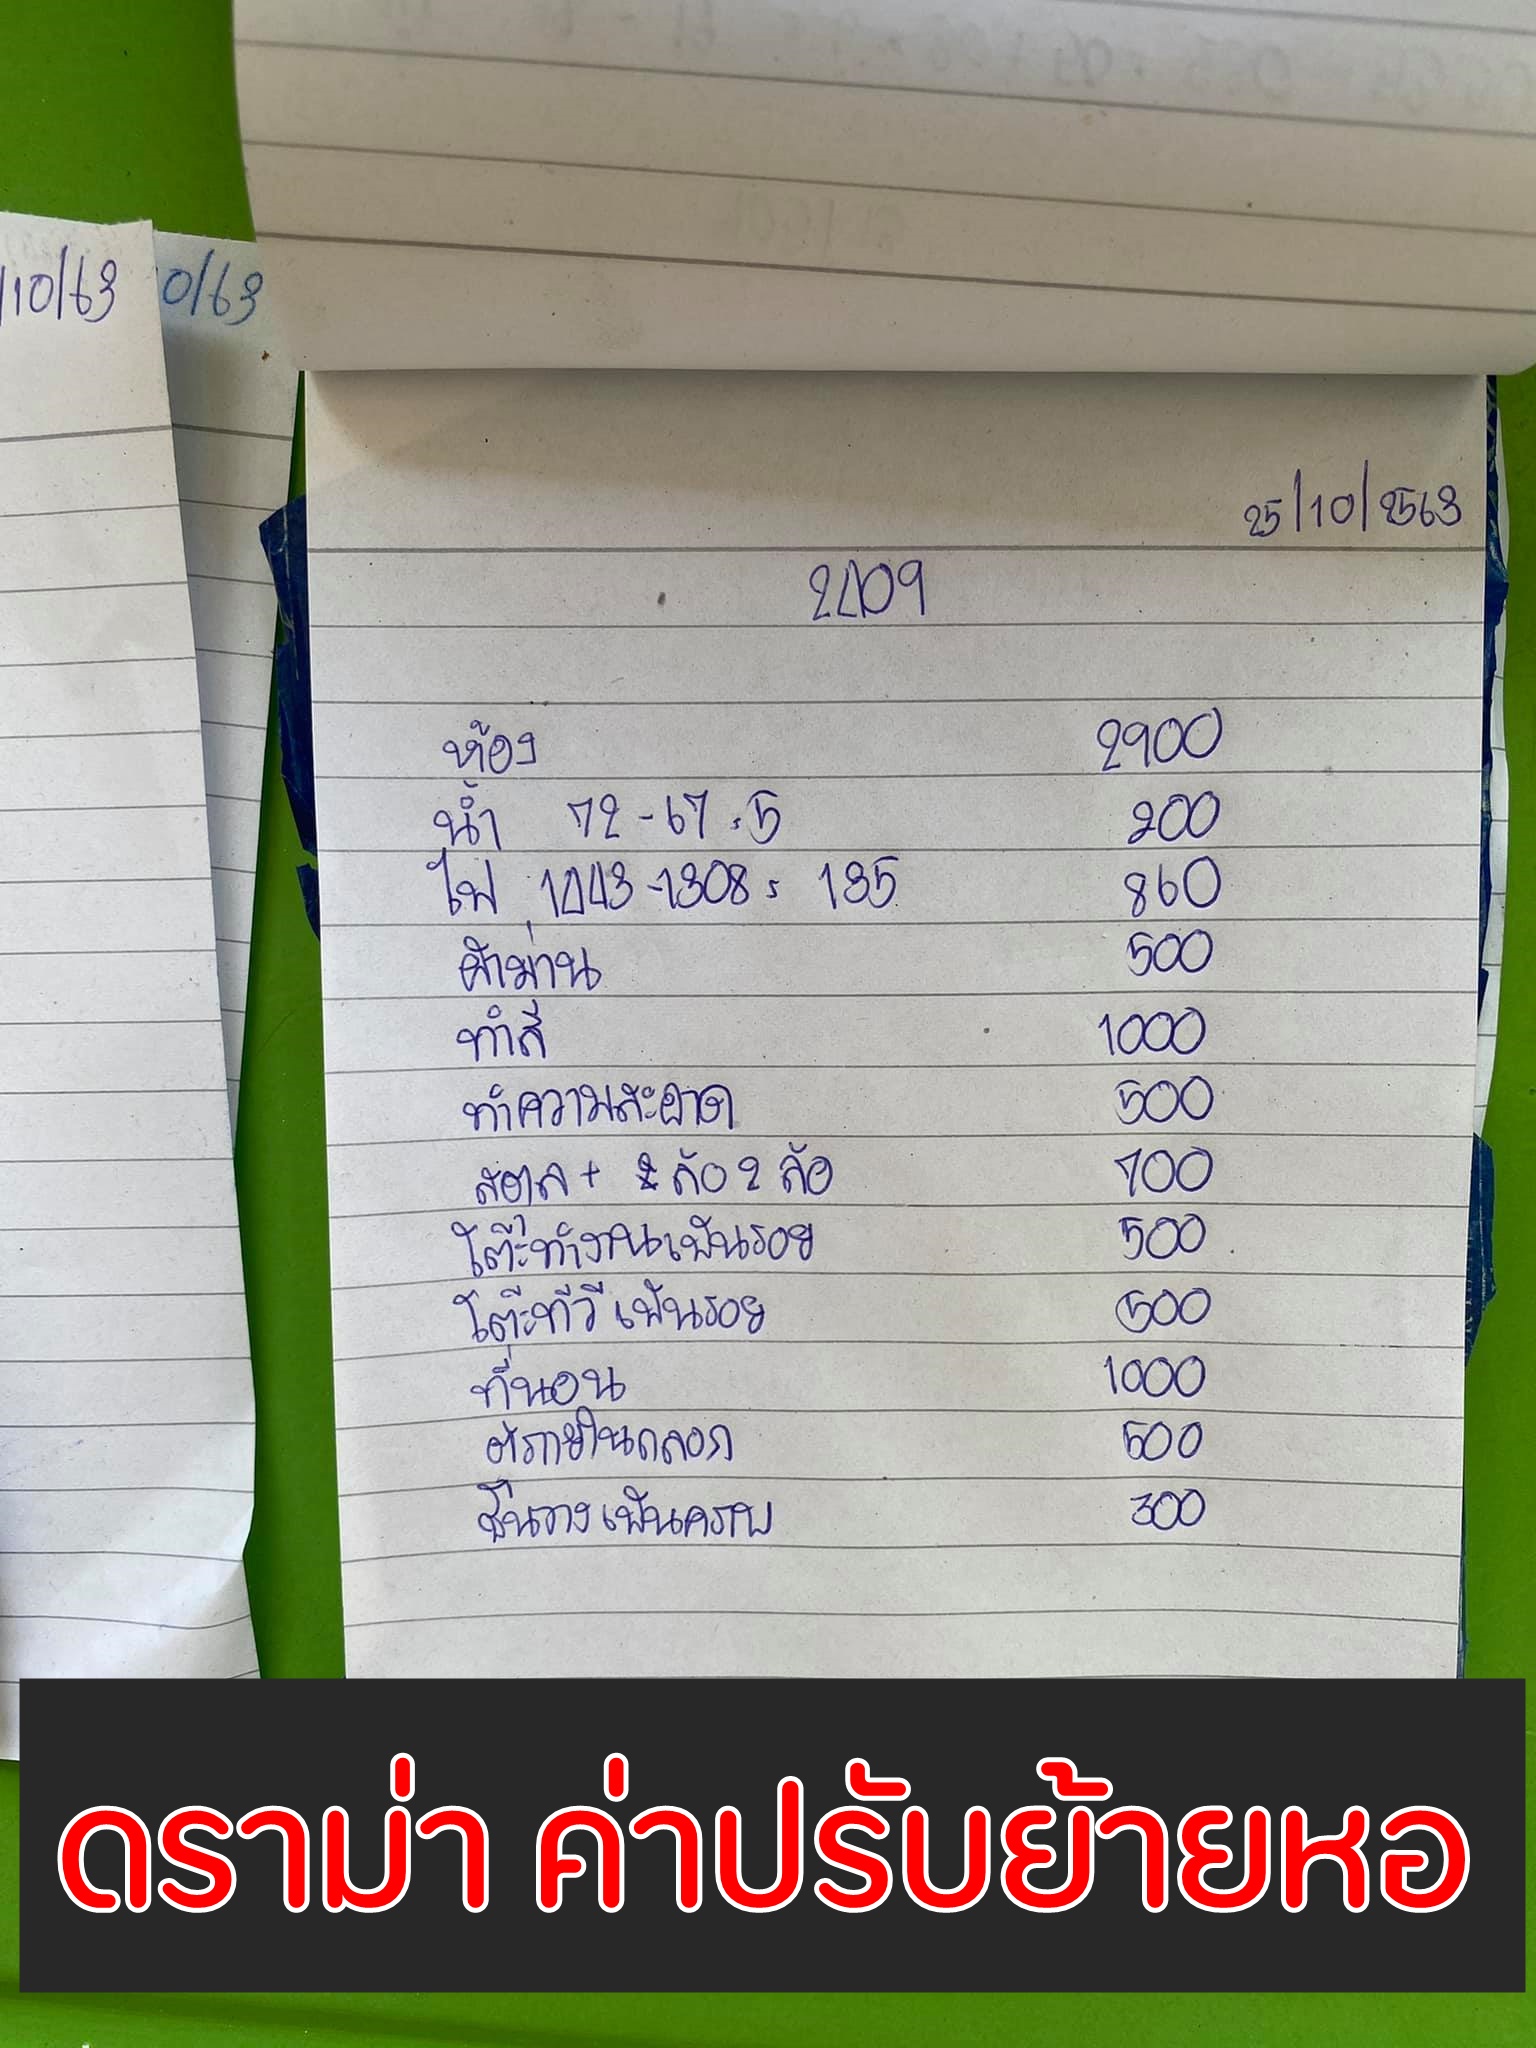 /10/63
0/63
25/10/2563
2409
ห้อง 2900
น้ำ 72-67=5 200
ไฟ 1443-1308= 135 860
ผ้าม่าน 500
ทำสี 1000
ทำความสะอาด 500
+ 2 ล้อ 2 ล้อ 700
โต๊ะทำงานเป็นรอย 500
โต๊ะทีวี เป็นรอย 500
ที่นอน 1000
500
ชั้นวาง เป็นคราบ 300
ดราม่า ค่าปรับย้ายหอ